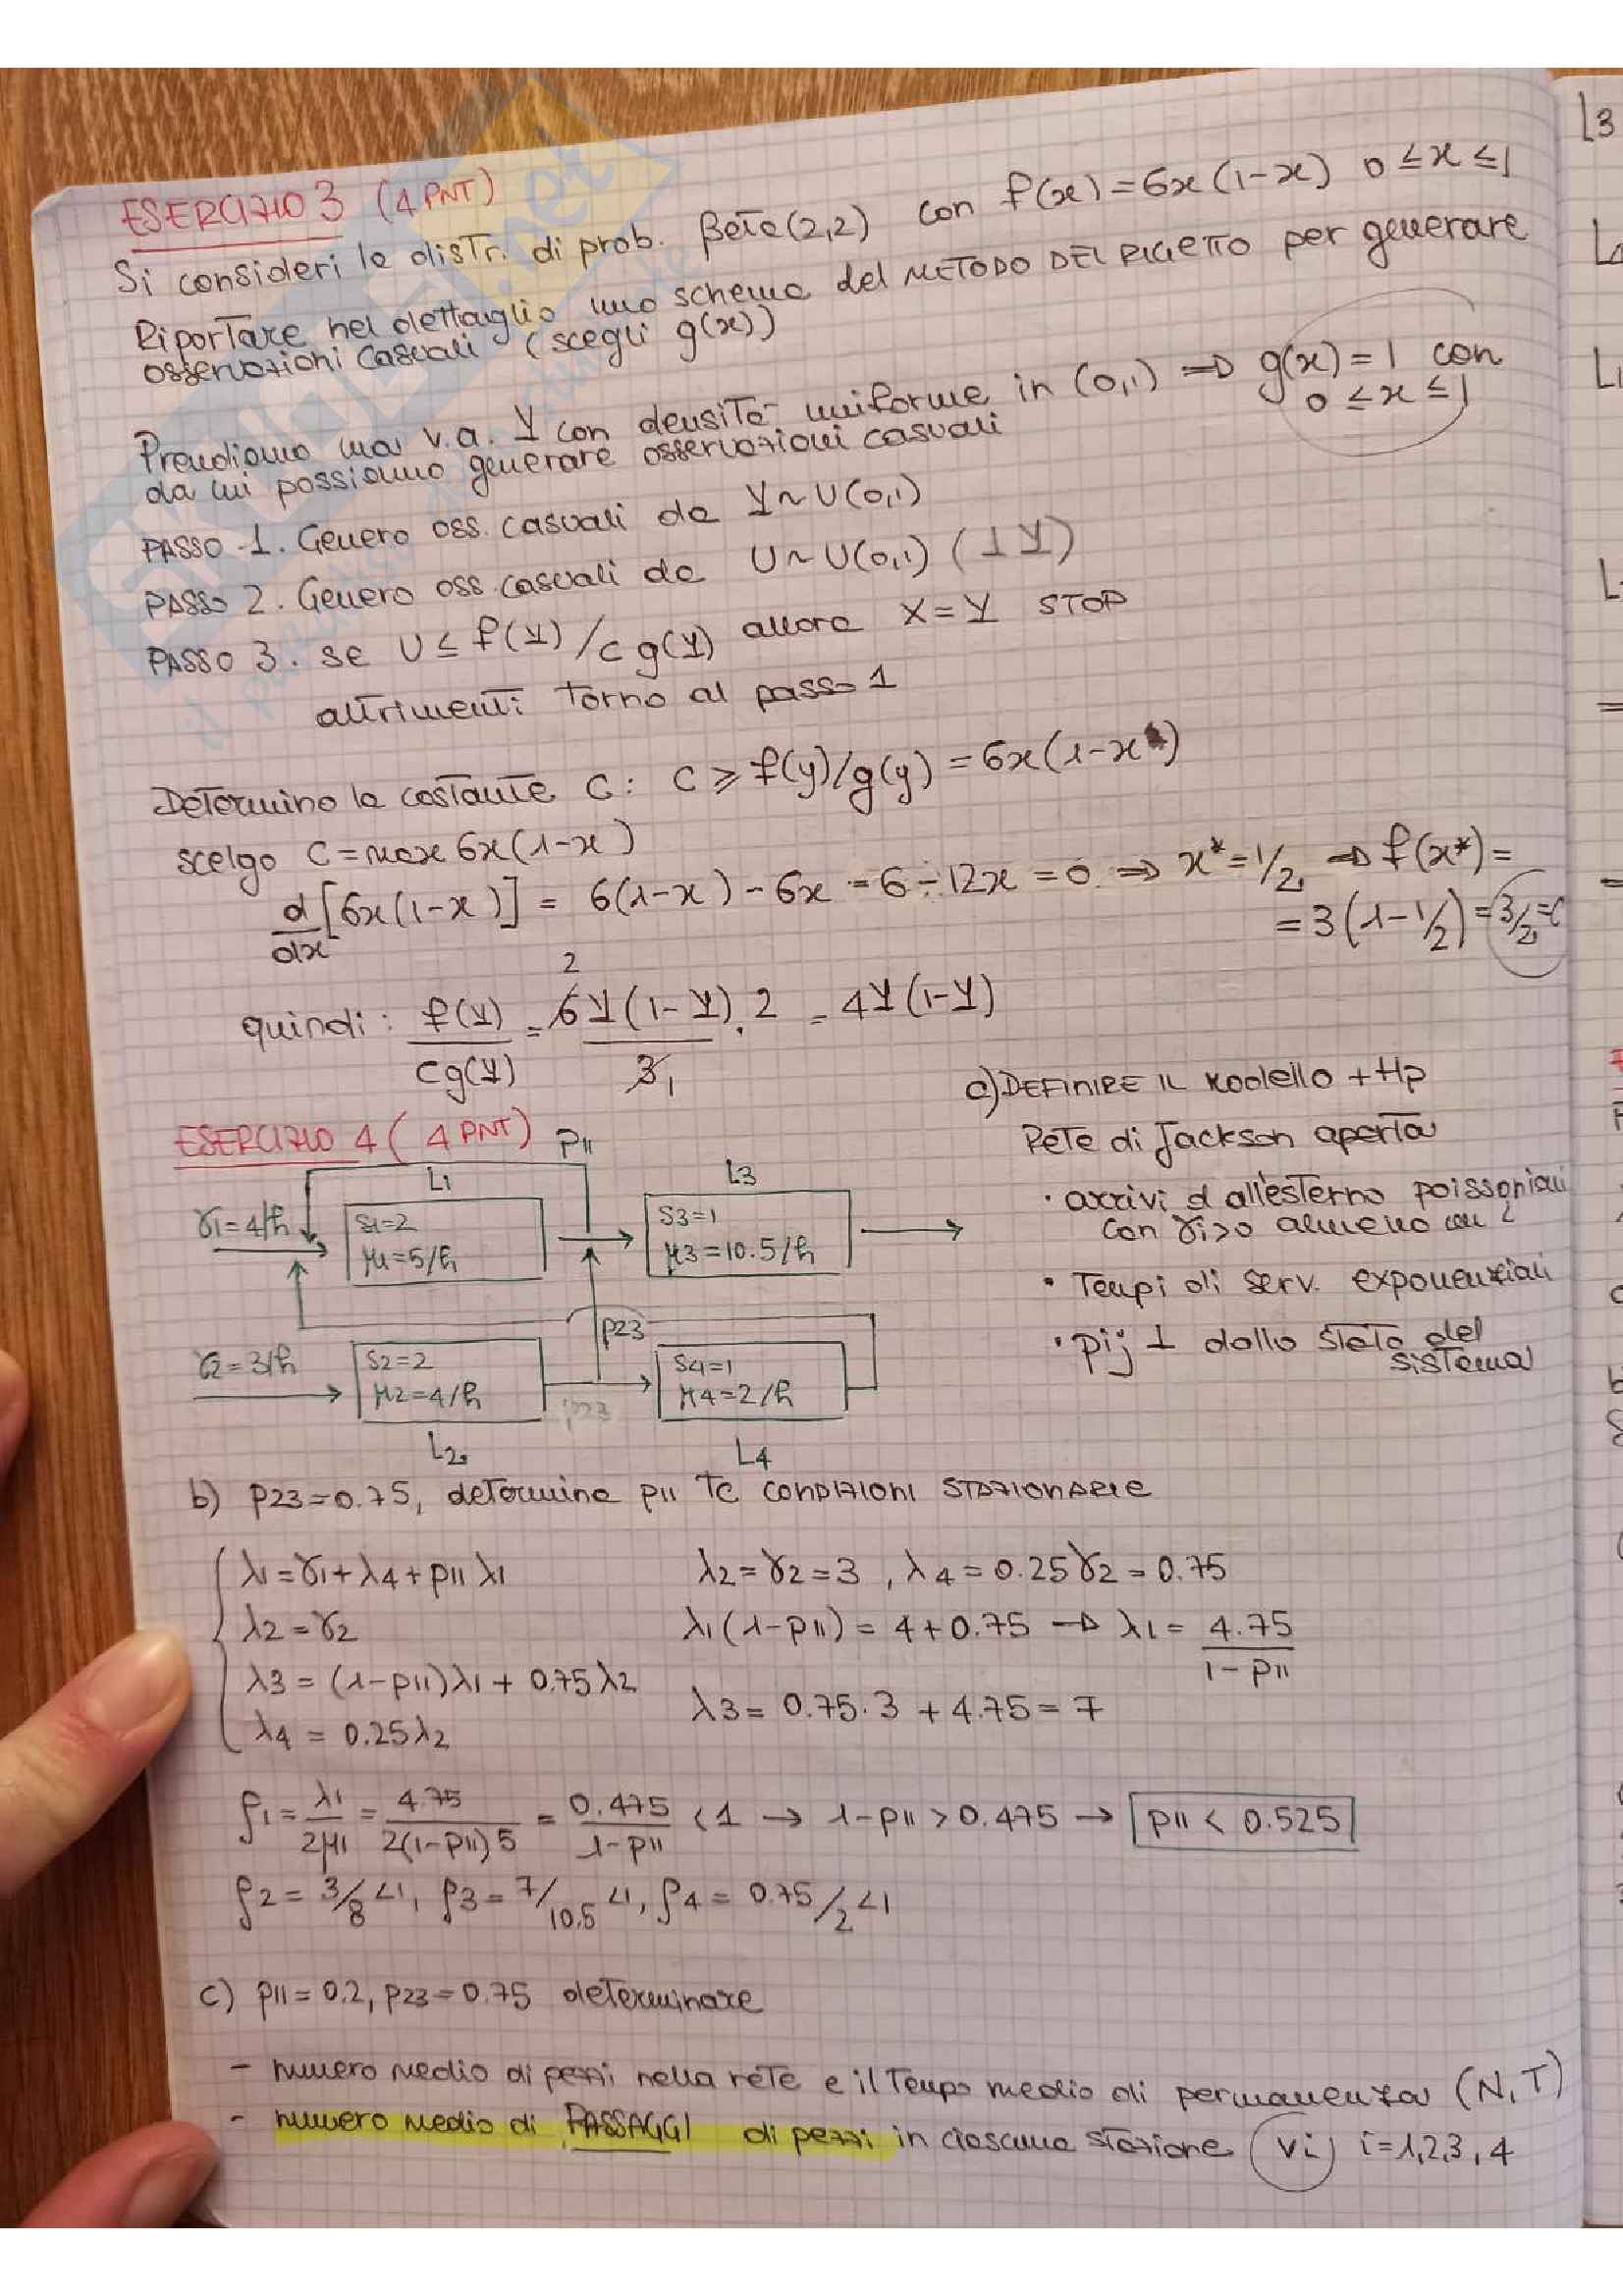 ESERCIZIO 3 (4 PNT)
Si consideri la distr. di prob. Beta(2,2) con f(x)=6x(1-x) 0≤x≤1
Riportare nel dettaglio uno schema del METODO DEL RIGETTO per generare
osservazioni casuali (scegli g(x))
Prendiamo una v.a. Y con densità uniforme in (0,1) ⇒ g(x)=1 con
0≤x≤1
da cui possiamo generare osservazioni casuali
PASSO 1. Genero oss. casuali da Y~U(0,1)
PASSO 2. Genero oss. casuali da U~U(0,1) (⊥Y)
PASSO 3. se U≤f(Y)/cg(Y) allora X=Y STOP
altrimenti torno al passo 1
Determino la costante C: C≥f(y)/g(y)=6x(1-x)
scelgo C=max 6x(1-x)
d/dx[6x(1-x)] = 6(1-x)-6x = 6-12x=0 ⇒ x*=1/2 ⇒ f(x*)=
=3(1-1/2)=3/2=C
quindi: f(Y)/cg(Y) = 6Y(1-Y)/3 · 2 = 4Y(1-Y)
2
1
ESERCIZIO 4 (4 PNT)
a) DEFINIRE IL Modello + Hp
Rete di Jackson aperta
· arrivi dall'esterno poissoniani
con γi>0 almeno un i
· Tempi di serv. esponenziali
· pij ⊥ dallo stato del
sistema
p11
L1
L3
γ1=4/h
S1=2
μ1=5/h
S3=1
μ3=10.5/h
p23
γ2=3/h
S2=2
μ2=4/h
S4=1
μ4=2/h
p23
L2
L4
b) p23=0.75, determina p11 tc CONDIZIONI STAZIONARIE
λ1=γ1+λ4+p11λ1 λ2=γ2=3, λ4=0.25γ2=0.75
λ2=γ2 λ1(1-p11)=4+0.75 → λ1=4.75/1-p11
λ3=(1-p11)λ1+0.75λ2 λ3=0.75·3+4.75=7
λ4=0.25λ2
ρ1=λ1/2μ1=4.75/2(1-p11)5=0.475/1-p11<1 → 1-p11>0.475 → p11<0.525
ρ2=3/8<1, ρ3=7/10.5<1, ρ4=0.75/2<1
c) p11=0.2, p23=0.75 determinare
- numero medio di pezzi nella rete e il Tempo medio di permanenza (N,T)
- numero medio di PASSAGGI di pezzi in ciascuna stazione (vi) i=1,2,3,4
L3